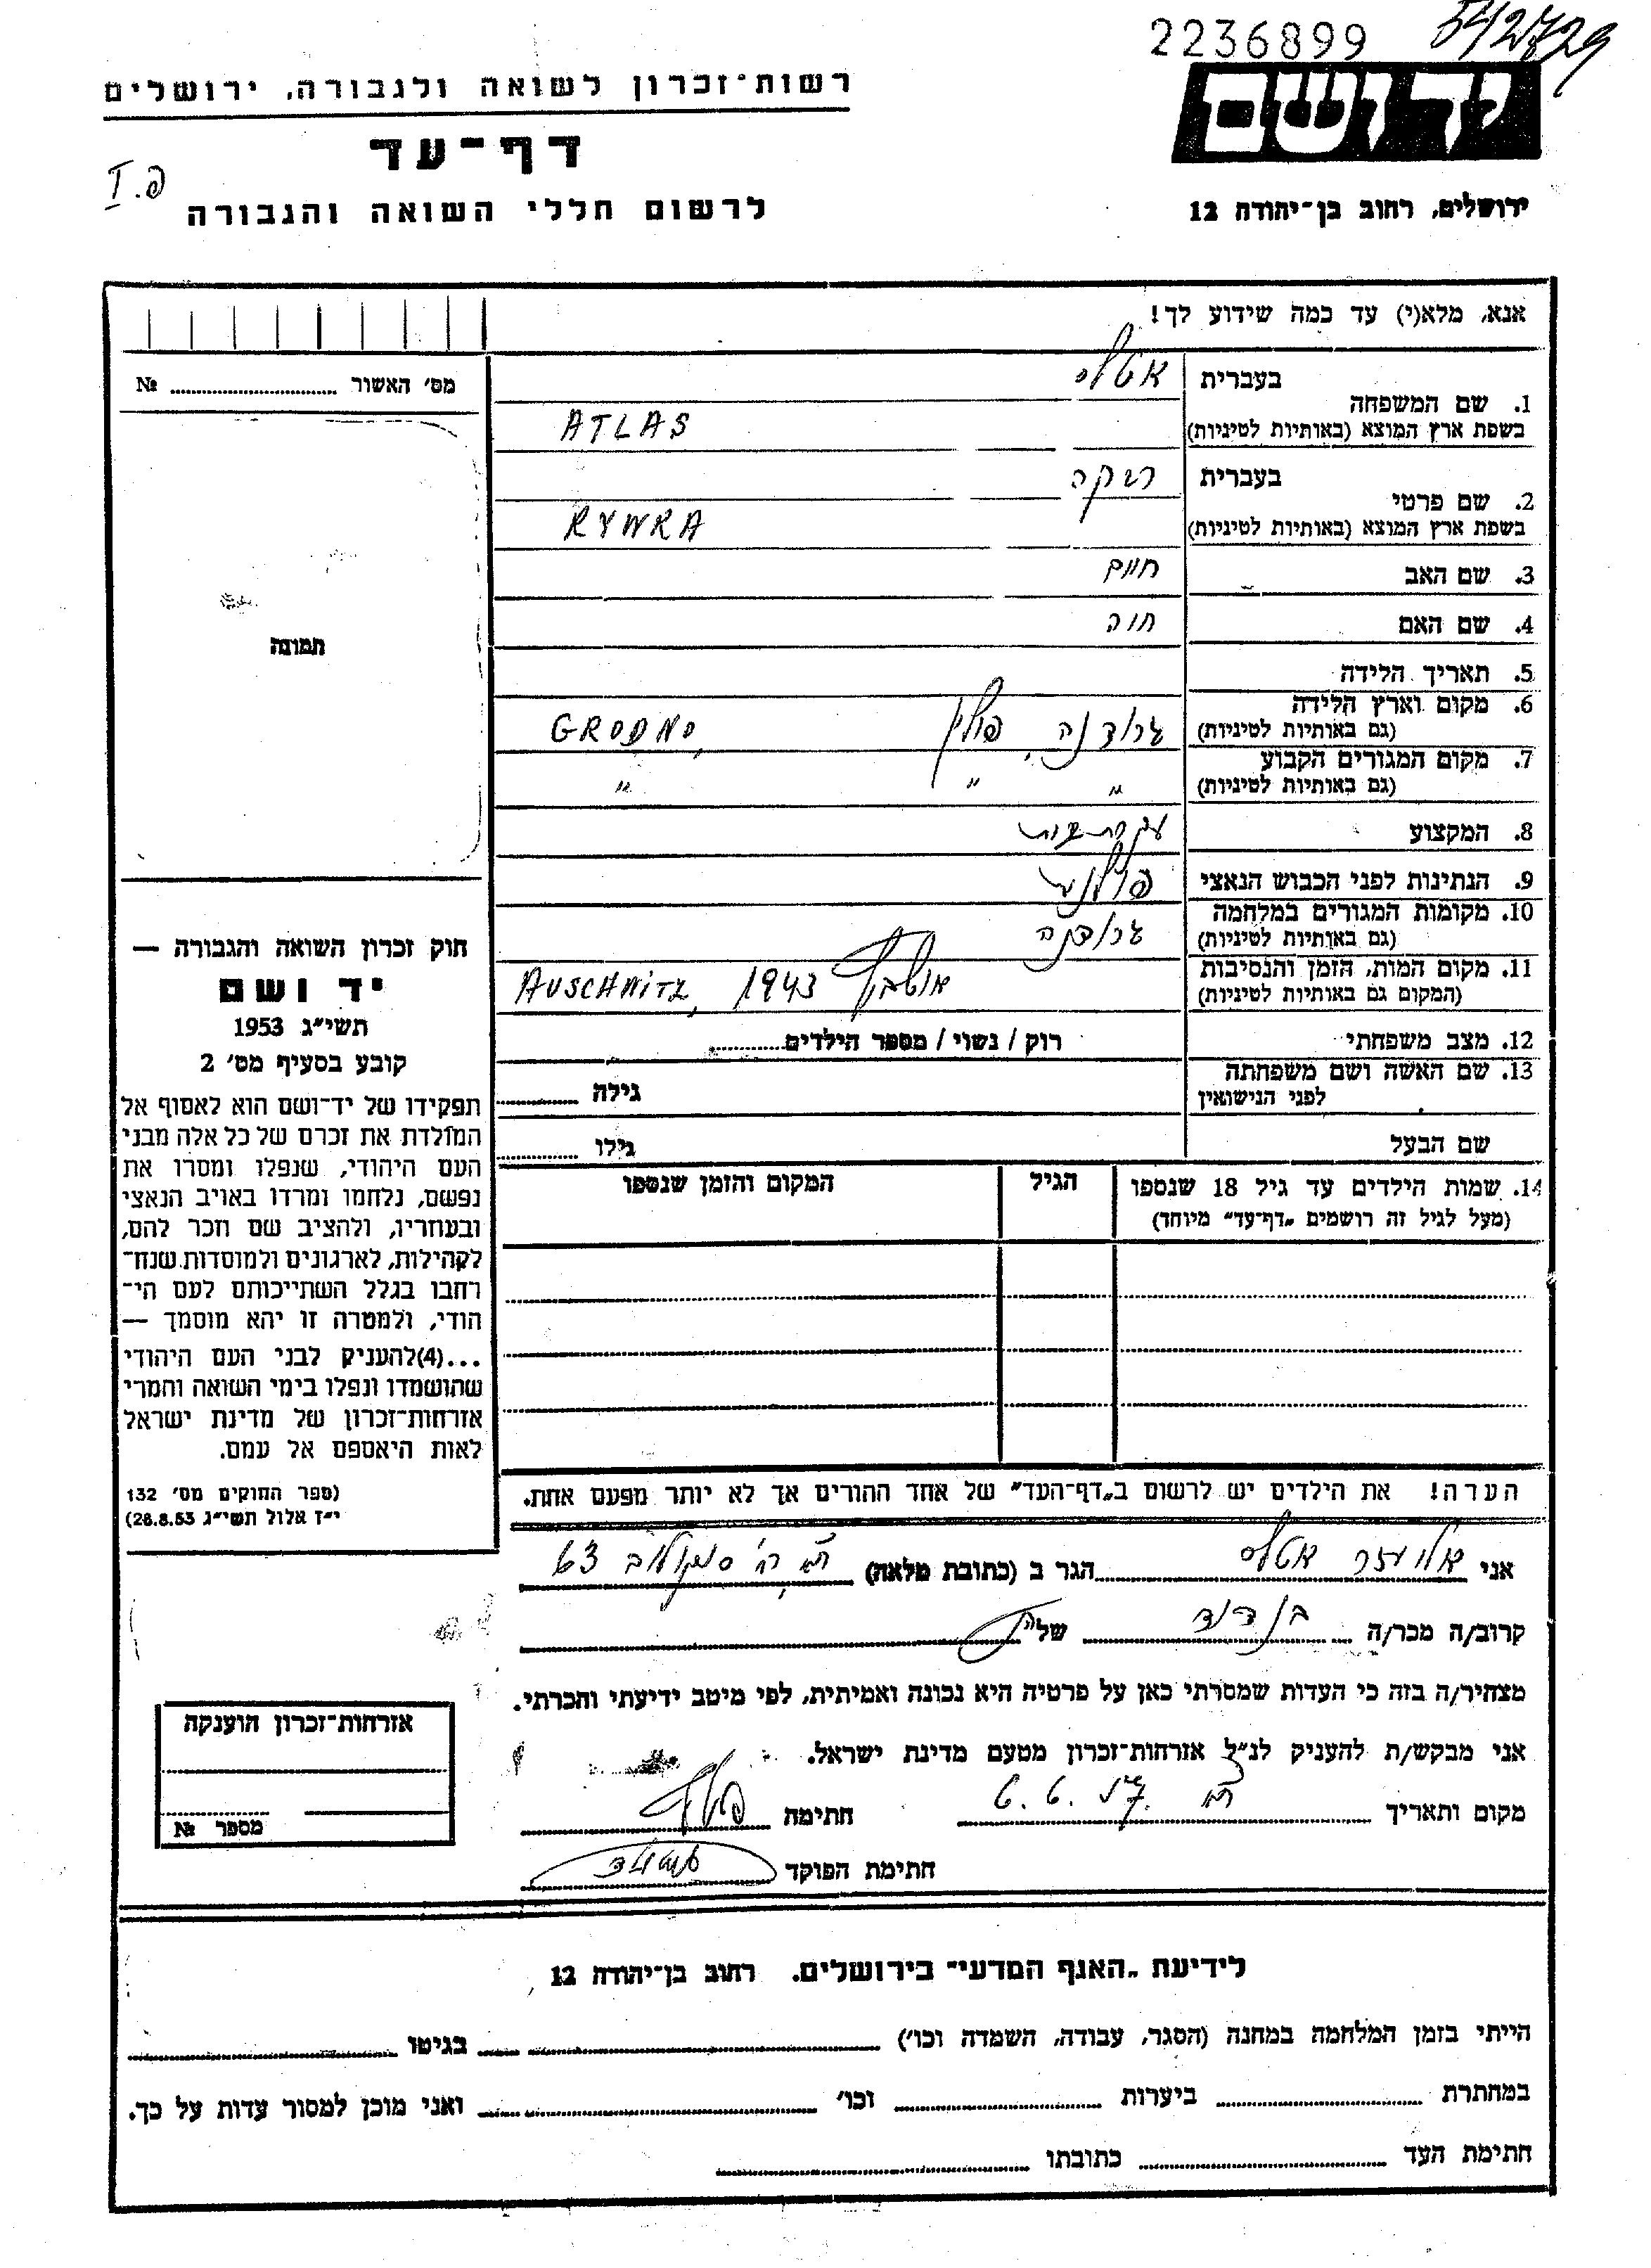 2236899 542729
יד ושם
ירושלים, רחוב בן־יהודה 12
רשות־זכרון לשואה ולגבורה, ירושלים
דף־עד
לרשום חללי השואה והגבורה
פ.I
אנא, מלא(י) עד כמה שידוע לך!
מס' האשור № ........
תמונה
1. שם המשפחה בעברית אטלס
בשפת ארץ המוצא (באותיות לטיניות) ATLAS
2. שם פרטי בעברית רבקה
בשפת ארץ המוצא (באותיות לטיניות) RYWRA
3. שם האב חיים
4. שם האם חוה
5. תאריך הלידה
6. מקום וארץ הלידה גרודנה, פולין GRODNO,
(גם באותיות לטיניות)
7. מקום המגורים הקבוע " " "
(גם באותיות לטיניות)
8. המקצוע עקרת בית
9. הנתינות לפני הכבוש הנאצי פולנית
10. מקומות המגורים במלחמה גרודנה
(גם באותיות לטיניות)
11. מקום המות, הזמן והנסיבות AUSCHWITZ, 1943
(המקום גם באותיות לטיניות)
12. מצב משפחתי רוק / נשוי / מספר הילדים........
13. שם האשה ושם משפחתה
לפני הנישואין גילה ........
שם הבעל גילו ........
14. שמות הילדים עד גיל 18 שנספו הגיל המקום והזמן שנספו
(מעל לגיל זה רושמים „דף־עד" מיוחד)
הערה! את הילדים יש לרשום ב„דף־העד" של אחד ההורים אך לא יותר מפעם אחת.
חוק זכרון השואה והגבורה —
יד ושם
תשי"ג 1953
קובע בסעיף מס' 2
תפקידו של יד־ושם הוא לאסוף אל
המולדת את זכרם של כל אלה מבני
העם היהודי, שנפלו ומסרו את
נפשם, נלחמו ומרדו באויב הנאצי
ובעוזריו, ולהציב שם וזכר להם,
לקהילות, לארגונים ולמוסדות שנח־
רבו בגלל השתייכותם לעם הי־
הודי, ולמטרה זו יהא מוסמך —
...(4)להעניק לבני העם היהודי
שהושמדו ונפלו בימי השואה והמרי
אזרחות־זכרון של מדינת ישראל
לאות היאספם אל עמם.
(ספר החוקים מס' 132
י"ז אלול תשי"ג 28.8.53)
אני אליעזר אטלס הגר ב (כתובת מלאה) סוקולוב 63
קרוב/ה מכר/ה בן דוד של
מצהיר/ה בזה כי העדות שמסרתי כאן על פרטיה היא נכונה ואמיתית, לפי מיטב ידיעתי והכרתי.
אני מבקש/ת להעניק לנ"ל אזרחות־זכרון מטעם מדינת ישראל.
מקום ותאריך חתימה
חתימת הפוקד
אזרחות־זכרון הוענקה
מספר №
לידיעת „האגף המדעי" בירושלים, רחוב בן־יהודה 12
הייתי בזמן המלחמה במחנה (הסגר, עבודה, השמדה וכו') ........ בגיטו ........
במחתרת ........ ביערות ........ וכו' ........ ואני מוכן למסור עדות על כך.
חתימת העד ........ כתובתו ........